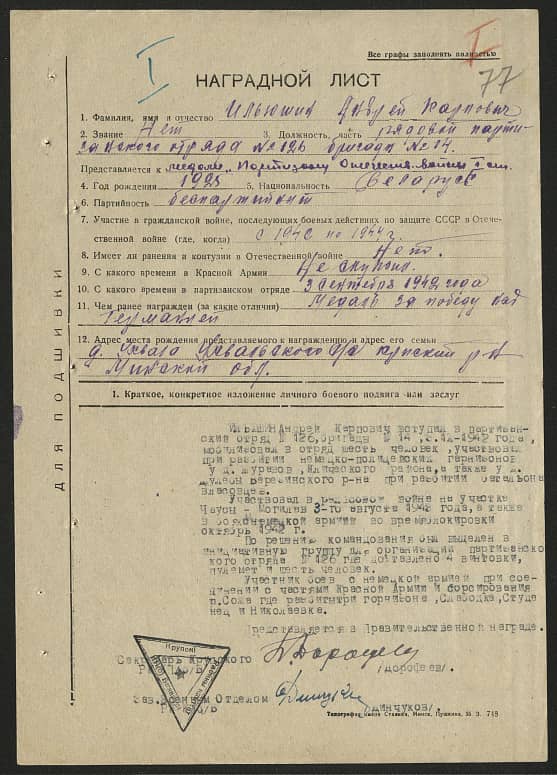 I
I
77
Все графы заполнять полностью
НАГРАДНОЙ ЛИСТ
1. Фамилия, имя и отчество Ильюшин Андрей Карпович
2. Звание Нет 3. Должность, часть рядовой парти-
занского отряда № 126 бригады № 14.
Представляется к медали „Партизану Отечеств. войны I ст.
4. Год рождения 5. Национальность Беларус
6. Партийность беспартийный
7. Участие в гражданской войне, последующих боевых действиях по защите СССР в Отече-
ственной войне (где, когда) с по 1944 г.
8. Имеет ли ранения и контузии в Отечественной войне Нет.
9. С какого времени в Красной Армии Не служил.
10. С какого времени в партизанском отряде 3 сентября 1942 года
11. Чем ранее награжден (за какие отличия) Медаль за победу над
Германией
12. Адрес места рождения представляемого к награждению и адрес его семьи
д. Ухвала Ухвальского с/с Крупский р-н
Минской обл.
ДЛЯ ПОДШИВКИ
I. Краткое, конкретное изложение личного боевого подвига или заслуг
Андрей Карпович вступил в партизан-
ский отряд № 126, бригады № 14, 3.IX-1942 года,
мобилизовал в отряд шесть человек, участвовал
при разбитии немецко-полицейских гарнизонов
у д. Журавов, района, а также у д.
Березинского р-на при разбитии батальона
власовцев.
Участвовал в рельсовой война на участке
Чаусы - Могилев 3-го августа 1943 года, а также
в немецкой армией во время
октябрь 1942 г.
По решению командования был выделен в
инициативную группу для организации партизанско
го отряда № 126 где доставлено 4 винтовки,
пулемет и шесть человек.
Участник боев с немецкой армией при сое-
динении с частями Красной Армии и форсирования
р. Сожа где разбиты три, Слободка, Студе
нец и Николаевка.
Представляется к Правительственной награде.
Секретарь Крупского
РК КП/б/Б /Дорофеев/
Зав. Военным Отделом
РК КП/б/Б /Динчуков/
Типография имени Сталина, Минск, Пушкина, 55. З. 748